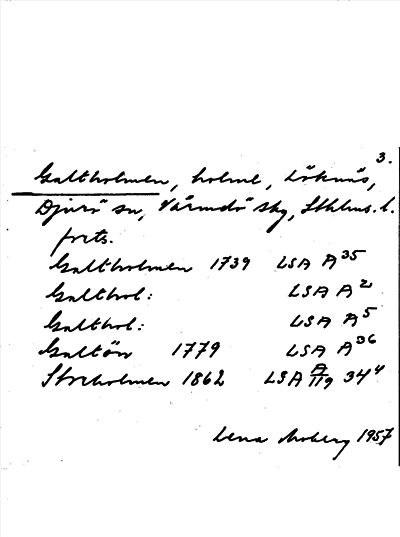 3.
Galtholmen, holme, Löknäs,
Djurö sn, Värmdö skg, Sthlms. l.
forts.
Galtholmen 1739 LSA A 35
Galthol: LSA A 2
Galthol: LSA A 5
Galtön 1779 LSA A 36
Storholmen 1862 LSA A 119 34 4
Lena Moberg 1957